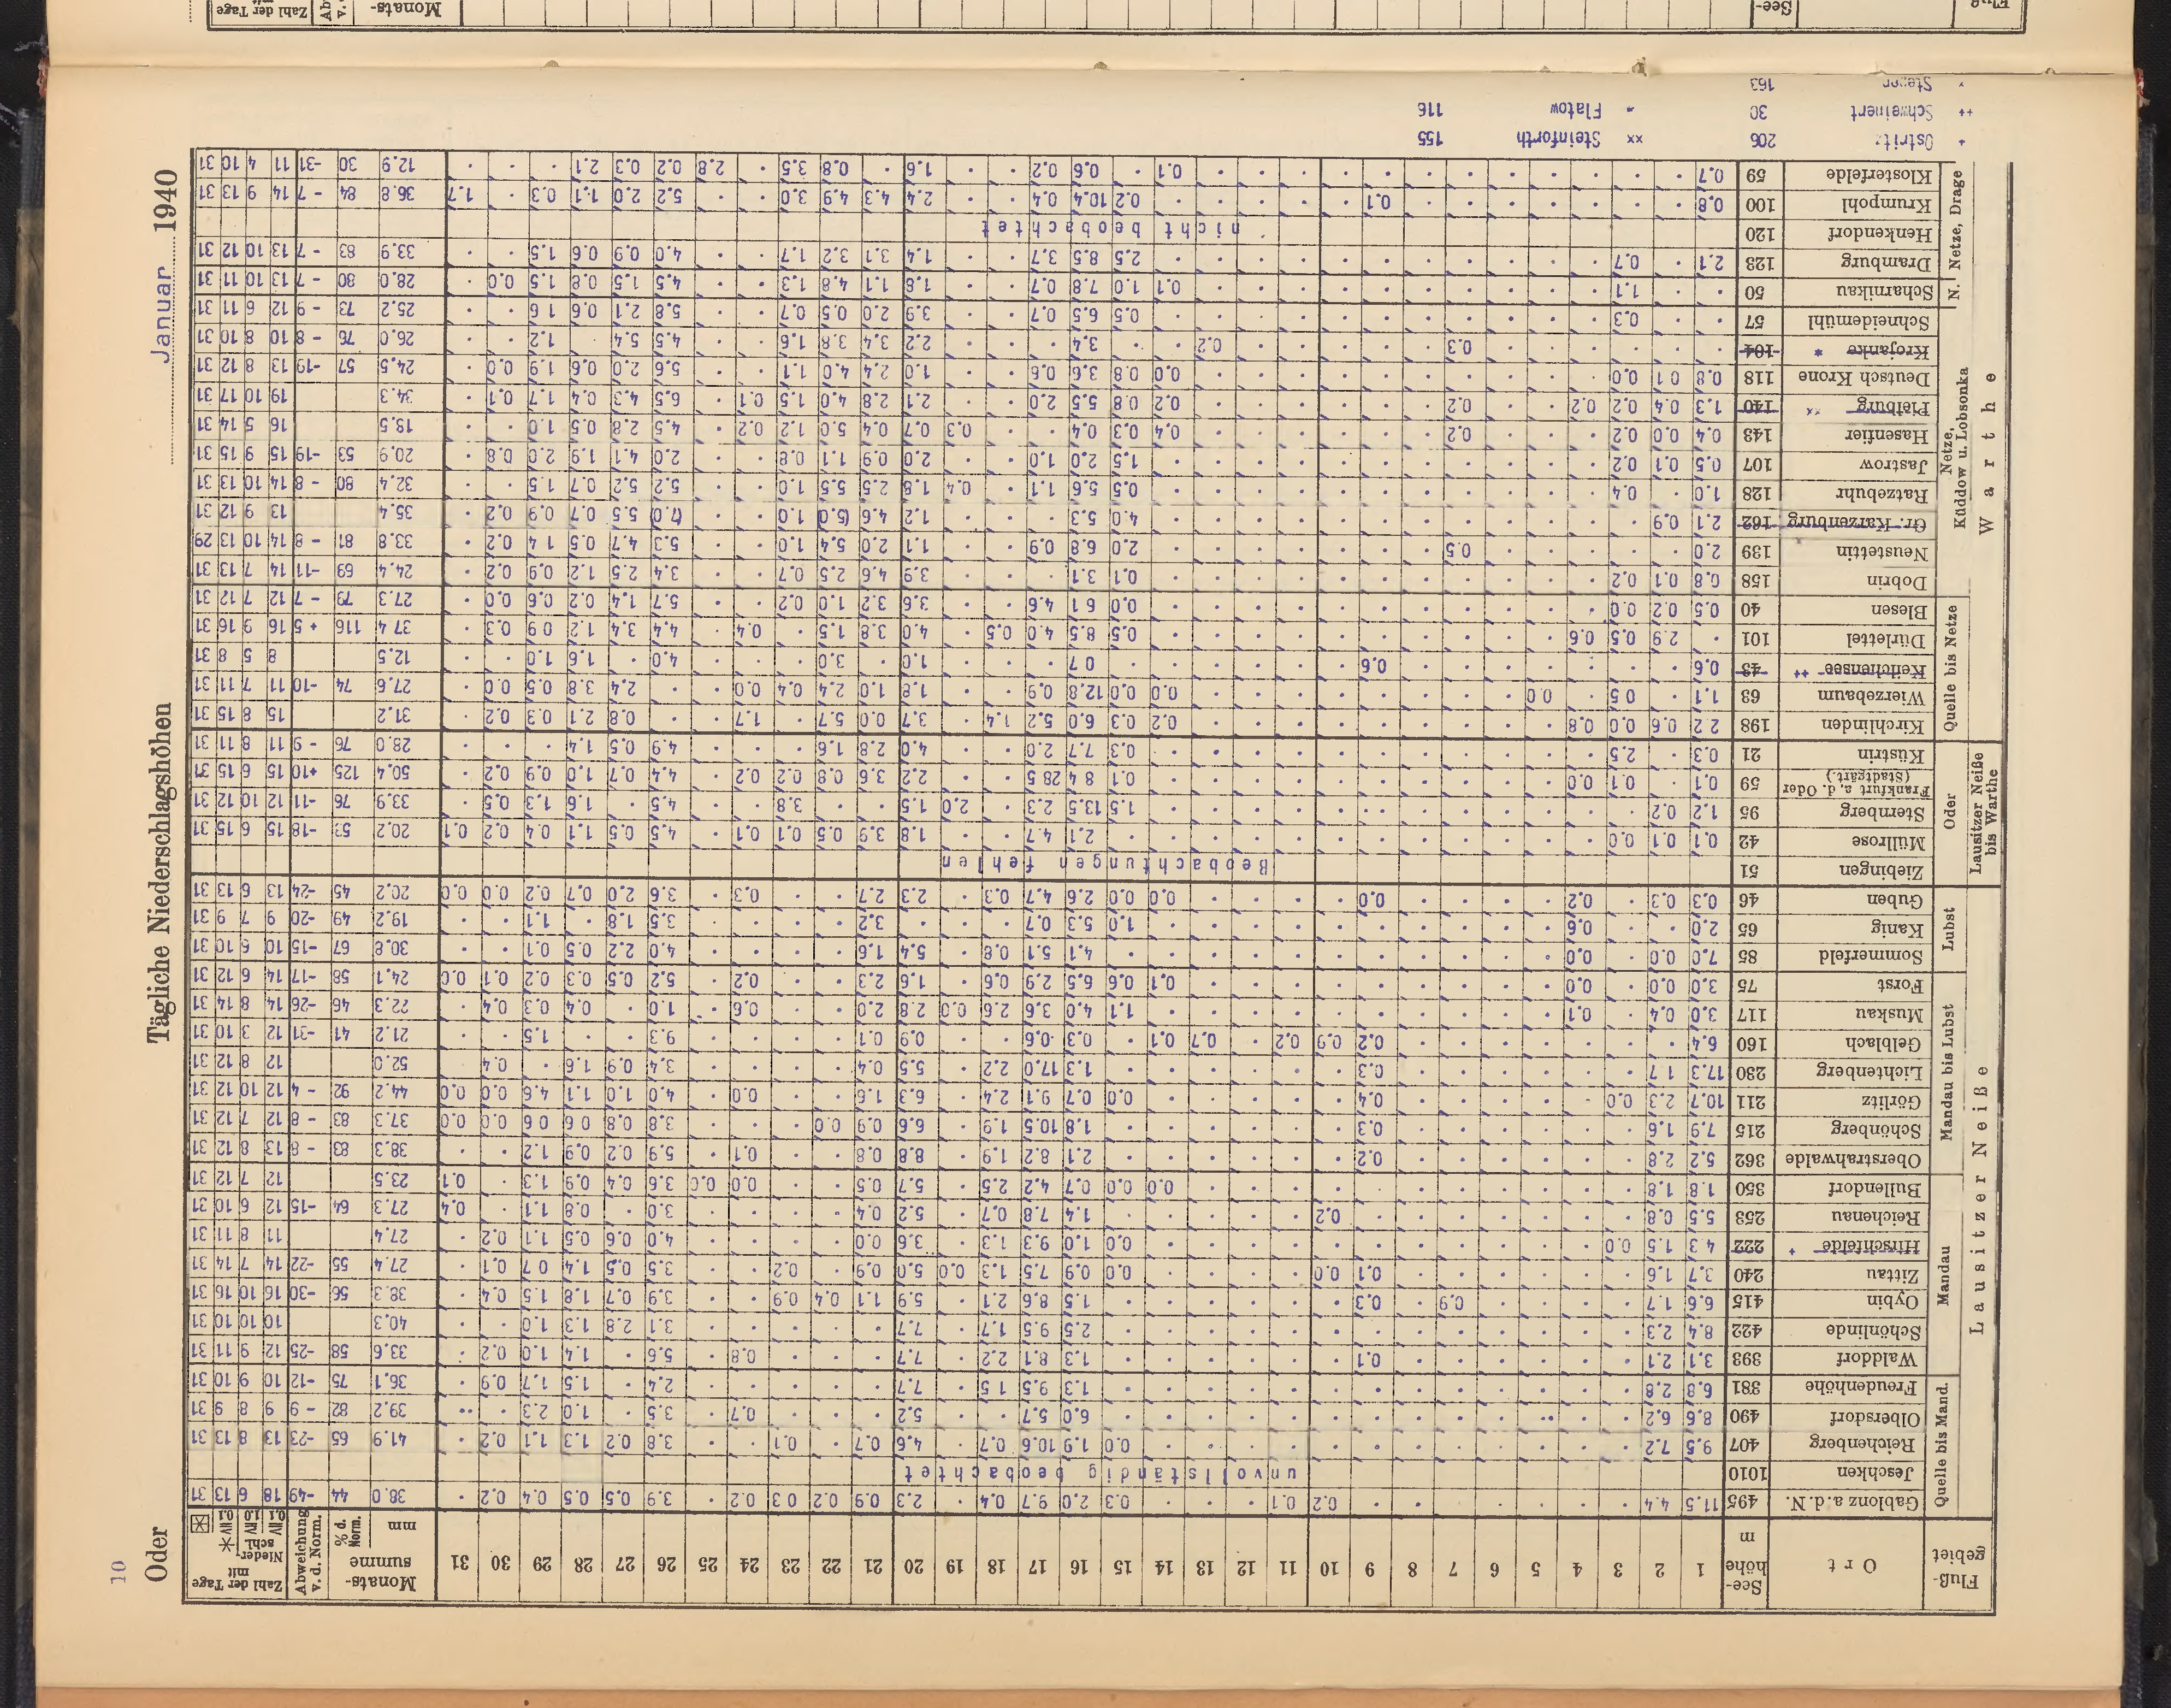 10
Oder Tägliche Niederschlagshöhen Januar 1940
Fluß-gebiet Ort See-höhe m 1 2 3 4 5 6 7 8 9 10 11 12 13 14 15 16 17 18 19 20 21 22 23 24 25 26 27 28 29 30 31 Monats-summe mm % d. Norm. Abweichung v. d. Norm. Zahl der Tage mit Nieder-schl. ≥0.1 ≥1.0 ≥0.1
Lausitzer Neiße
Quelle bis Mand.
Gablonz a. d. N. 495 11.5 4.4 0.2 0.1 0.3 2.0 9.7 0.4 2.3 0.9 0.2 0.3 0.2 3.9 0.5 0.5 0.4 0.2 38.0 44 -49 18 6 13 31
Jeschken 1010 unvollständig beobachtet
Reichenberg 407 9.5 7.2 0.0 1.9 10.6 0.7 4.6 0.7 0.1 3.8 0.2 1.3 1.1 0.2 41.9 65 -23 13 8 13 31
Olbersdorf 490 8.6 6.2 6.0 5.7 5.2 0.7 3.5 1.0 2.3 39.2 82 -9 9 8 9 31
Freudenhöhe 381 6.8 2.8 1.3 9.5 1.5 7.7 2.4 1.5 1.7 0.9 36.1 75 -12 10 9 10 31
Mandau
Walddorf 393 3.1 2.1 0.1 1.3 8.1 2.2 7.7 0.8 5.6 1.4 1.0 0.2 33.6 58 -25 12 9 11 31
Schönlinde 422 8.4 2.3 2.5 9.5 1.7 7.7 3.1 2.8 1.3 1.0 40.3 10 10 10 31
Oybin 415 6.6 1.7 0.9 0.3 1.5 8.6 2.1 5.9 1.1 0.4 0.9 3.9 0.7 1.8 1.5 0.4 38.3 56 -30 16 10 16 31
Zittau 240 3.7 1.6 0.1 0.0 0.0 0.9 7.5 1.3 0.0 5.0 0.9 0.2 3.5 0.5 1.4 0.7 0.1 27.4 55 -22 14 7 14 31
Hirschfelde + 222 4.3 1.5 0.0 0.0 1.0 9.3 1.3 3.6 0.0 4.0 0.6 0.5 1.1 0.2 27.4 11 8 11 31
Reichenau 253 5.5 0.8 0.2 1.4 7.8 0.7 5.2 0.4 3.0 0.8 1.1 0.4 27.3 64 -15 12 6 10 31
Bullendorf 350 1.8 1.8 0.0 0.0 0.7 4.2 2.5 5.7 0.5 0.0 0.0 3.6 0.4 0.9 1.3 0.1 23.5 12 7 12 31
Mandau bis Lubst
Oberstrahwalde 362 5.2 2.8 0.2 2.1 8.2 1.9 8.8 0.8 0.1 5.9 0.2 0.9 1.2 38.3 83 -8 13 8 12 31
Schönberg 215 7.9 1.6 0.3 1.8 10.5 1.9 6.6 0.9 0.0 3.8 0.8 0.6 0.6 0.0 0.0 37.3 83 -8 12 7 12 31
Görlitz 211 10.7 2.3 0.0 0.4 0.0 0.7 9.1 2.4 6.3 1.6 0.0 4.0 1.0 1.1 4.6 0.0 0.0 44.2 92 -4 12 10 12 31
Lichtenberg 280 17.3 1.7 0.3 1.3 17.0 2.2 5.5 0.4 3.4 0.9 1.6 0.4 52.0 12 8 12 31
Gelblach 160 6.4 0.2 0.9 0.2 0.7 0.1 0.3 0.6 0.9 0.1 9.3 1.5 21.2 41 -31 12 3 10 31
Muskau 117 3.0 0.4 0.1 1.1 4.0 3.6 2.6 0.0 2.8 2.0 0.6 1.0 0.4 0.3 0.4 22.3 46 -26 14 8 14 31
Forst 75 3.0 0.0 0.0 0.1 0.6 6.5 2.9 0.6 1.6 2.3 0.2 5.2 0.5 0.3 0.2 0.1 0.0 24.1 58 -17 14 6 12 31
Lubst
Sommerfeld 85 7.0 0.0 0.0 4.1 5.1 0.8 5.4 1.6 4.0 2.2 0.5 0.1 30.8 67 -15 10 6 10 31
Kanig 65 2.0 0.6 1.0 5.3 0.7 3.2 3.5 1.8 1.1 19.2 49 -20 9 7 9 31
Guben 46 0.3 0.3 0.2 0.0 0.0 0.0 2.6 4.7 0.3 2.3 2.7 0.3 3.6 2.0 0.7 0.2 0.0 0.0 20.2 45 -24 13 6 13 31
Lausitzer Neiße bis Warthe
Oder
Ziebingen 51 Beobachtungen fehlen
Müllrose 42 0.1 0.1 0.0 2.1 4.7 1.8 3.9 0.5 0.1 0.1 4.5 0.5 1.1 0.4 0.2 0.1 20.2 53 -18 15 6 15 31
Sternberg 95 1.2 0.2 1.5 13.5 2.3 2.0 1.5 3.8 4.5 1.6 1.3 0.5 33.9 76 -11 12 10 12 31
Frankfurt a. d. Oder (Stadtgärt.) 59 0.1 0.1 0.0 0.1 8.4 28.5 2.2 3.6 0.8 0.2 0.2 4.4 0.7 1.0 0.9 0.2 50.4 125 +10 15 6 15 31
Küstrin 21 0.3 2.5 0.3 7.7 2.0 4.0 2.8 1.6 4.9 0.5 1.4 28.0 76 -9 11 8 11 31
Warthe
Quelle bis Netze
Kirchlinden 198 2.2 0.6 0.0 0.8 0.2 0.3 6.0 5.2 1.4 3.7 0.0 5.7 1.7 0.8 2.1 0.3 0.2 31.2 15 8 15 31
Wierzebaum 63 1.1 0.5 0.0 0.0 0.0 12.8 0.9 1.8 1.0 2.4 0.4 0.0 2.4 3.8 0.5 0.0 27.6 74 -10 11 7 11 31
Keilchensee ++ 43 0.6 0.6 0.7 1.0 3.0 4.0 1.6 1.0 12.5 8 5 8 31
Dürlettel 101 2.9 0.5 0.6 0.5 8.5 4.0 0.5 4.0 3.8 1.5 0.4 4.4 3.4 1.2 0.9 0.3 37.4 116 +5 16 9 16 31
Blesen 40 0.5 0.2 0.0 0.0 6.1 4.6 3.6 3.2 1.0 0.2 5.7 1.4 0.2 0.6 0.0 27.3 79 -7 12 7 12 31
Netze, Küddow u. Lobsonka
Dobrin 158 0.8 0.1 0.2 0.1 3.1 3.9 4.6 2.5 0.7 3.4 2.5 1.2 0.9 0.2 24.4 69 -11 14 7 13 31
Neustettin 139 2.0 0.5 2.0 6.8 0.9 1.1 2.0 5.4 1.0 5.3 4.7 0.5 1.4 0.2 33.8 81 -8 14 10 13 29
Gr. Karzenburg 162 2.1 0.9 4.0 5.3 1.2 4.6 (5.0 1.0 (7.0) 5.5 0.7 0.9 0.2 35.4 13 9 12 31
Ratzebuhr 128 1.0 0.4 0.5 5.6 1.1 0.4 1.8 2.5 5.5 1.0 5.2 5.2 0.7 1.5 32.4 80 -8 14 10 13 31
Jastrow 107 0.5 0.1 0.2 1.5 2.0 1.0 2.0 0.9 1.1 0.8 2.0 4.1 1.9 2.0 0.8 20.9 53 -19 15 9 15 31
Hasenfier 143 0.4 0.0 0.2 0.2 0.4 0.3 0.4 0.3 0.7 0.4 5.0 1.2 0.2 4.5 2.8 0.5 1.0 18.5 16 5 14 31
Plietburg xx 140 1.3 0.4 0.2 0.2 0.2 0.2 0.8 5.5 2.0 2.1 2.8 4.0 1.5 0.1 6.5 4.3 0.4 1.7 0.1 34.3 19 10 17 31
Deutsch Krone 118 0.8 0.1 0.0 0.0 0.8 3.6 0.6 1.0 2.4 4.0 1.1 5.6 2.0 0.6 1.9 0.0 24.5 57 -19 13 8 12 31
Krojanke * 104 0.3 0.2 3.4 2.2 3.4 3.8 1.6 4.5 5.4 1.2 26.0 76 -8 10 8 10 31
Schneidemühl 57 0.3 0.5 6.5 0.7 3.9 2.0 0.5 0.7 5.8 2.1 0.6 1.6 25.2 73 -9 12 6 11 31
N.
Scharnikau 50 1.1 0.1 1.0 7.8 0.7 1.8 1.1 4.8 1.3 4.5 1.5 0.8 1.5 0.0 28.0 80 -7 13 10 11 31
Netze, Drage
Dramburg 123 2.1 0.7 2.5 8.5 3.7 1.4 3.1 3.2 1.7 4.0 0.9 0.6 1.5 33.9 83 -7 13 10 12 31
Henkendorf 120 nicht beobachtet
Krumpohl 100 0.8 0.1 0.2 10.4 0.4 2.4 4.3 4.9 3.0 5.2 2.0 1.1 0.3 1.7 36.8 84 -7 14 9 13 31
Klosterfelde 59 0.7 0.1 0.6 0.2 1.6 0.8 3.5 2.8 0.2 0.3 2.1 12.9 30 -31 11 4 10 31
+ Ostritz 206 xx Steinforth 155
++ Schweinert 30 Flatow 116
163
See- Monats- Zahl der Tage